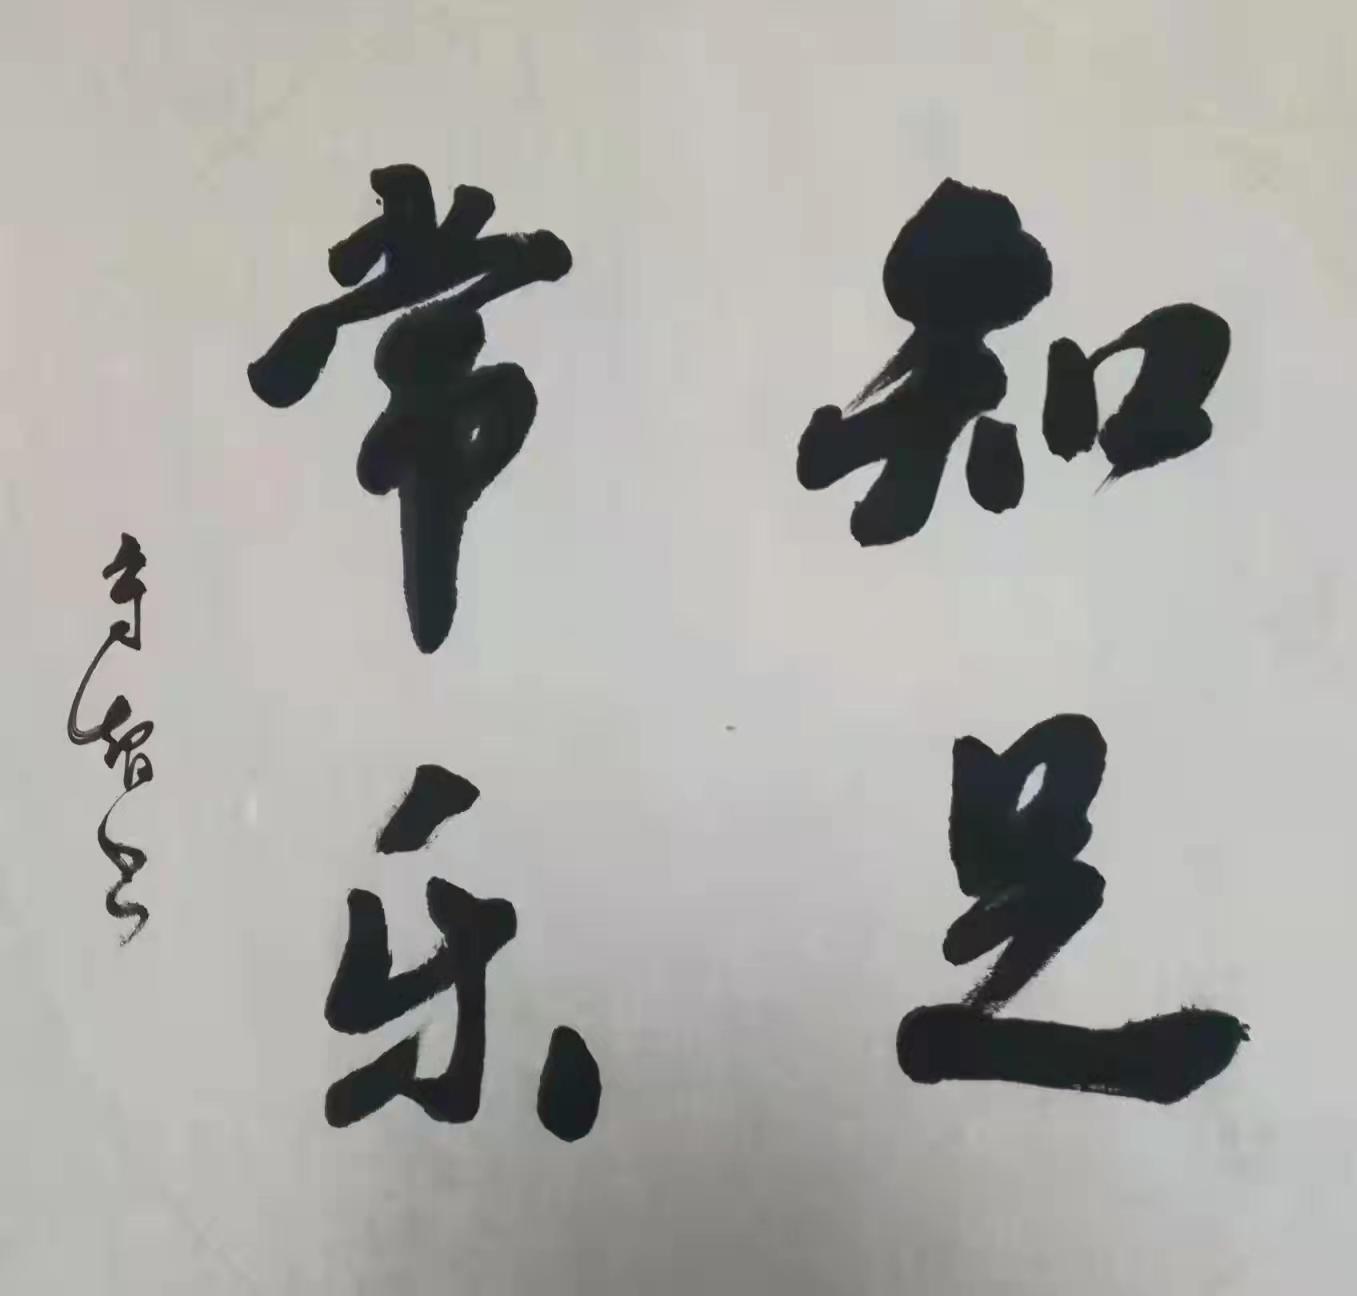 知足
常乐